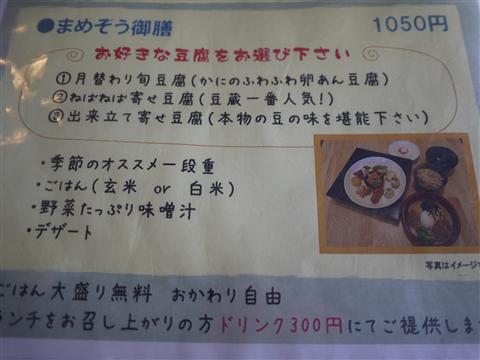 ●まめぞう御膳 1050円
お好きな豆腐をお選び下さい
①月替わり旬豆腐(かにのふわふわ卵あん豆腐)
②ねばねば寄せ豆腐(豆蔵一番人気!)
③出来立て寄せ豆腐(本物の豆の味を堪能下さい)
・季節のオススメ一段重
・ごはん(玄米 or 白米)
・野菜たっぷり味噌汁
・デザート
写真はイメージで
ごはん大盛り無料 おかわり自由
ランチをお召し上がりの方ドリンク300円にてご提供しま